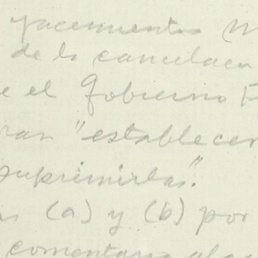 yacimientos
de la cancelacu
e el Gobierno F
ran "establecer
suprimirlas".
as (a) y (b) por
comentario